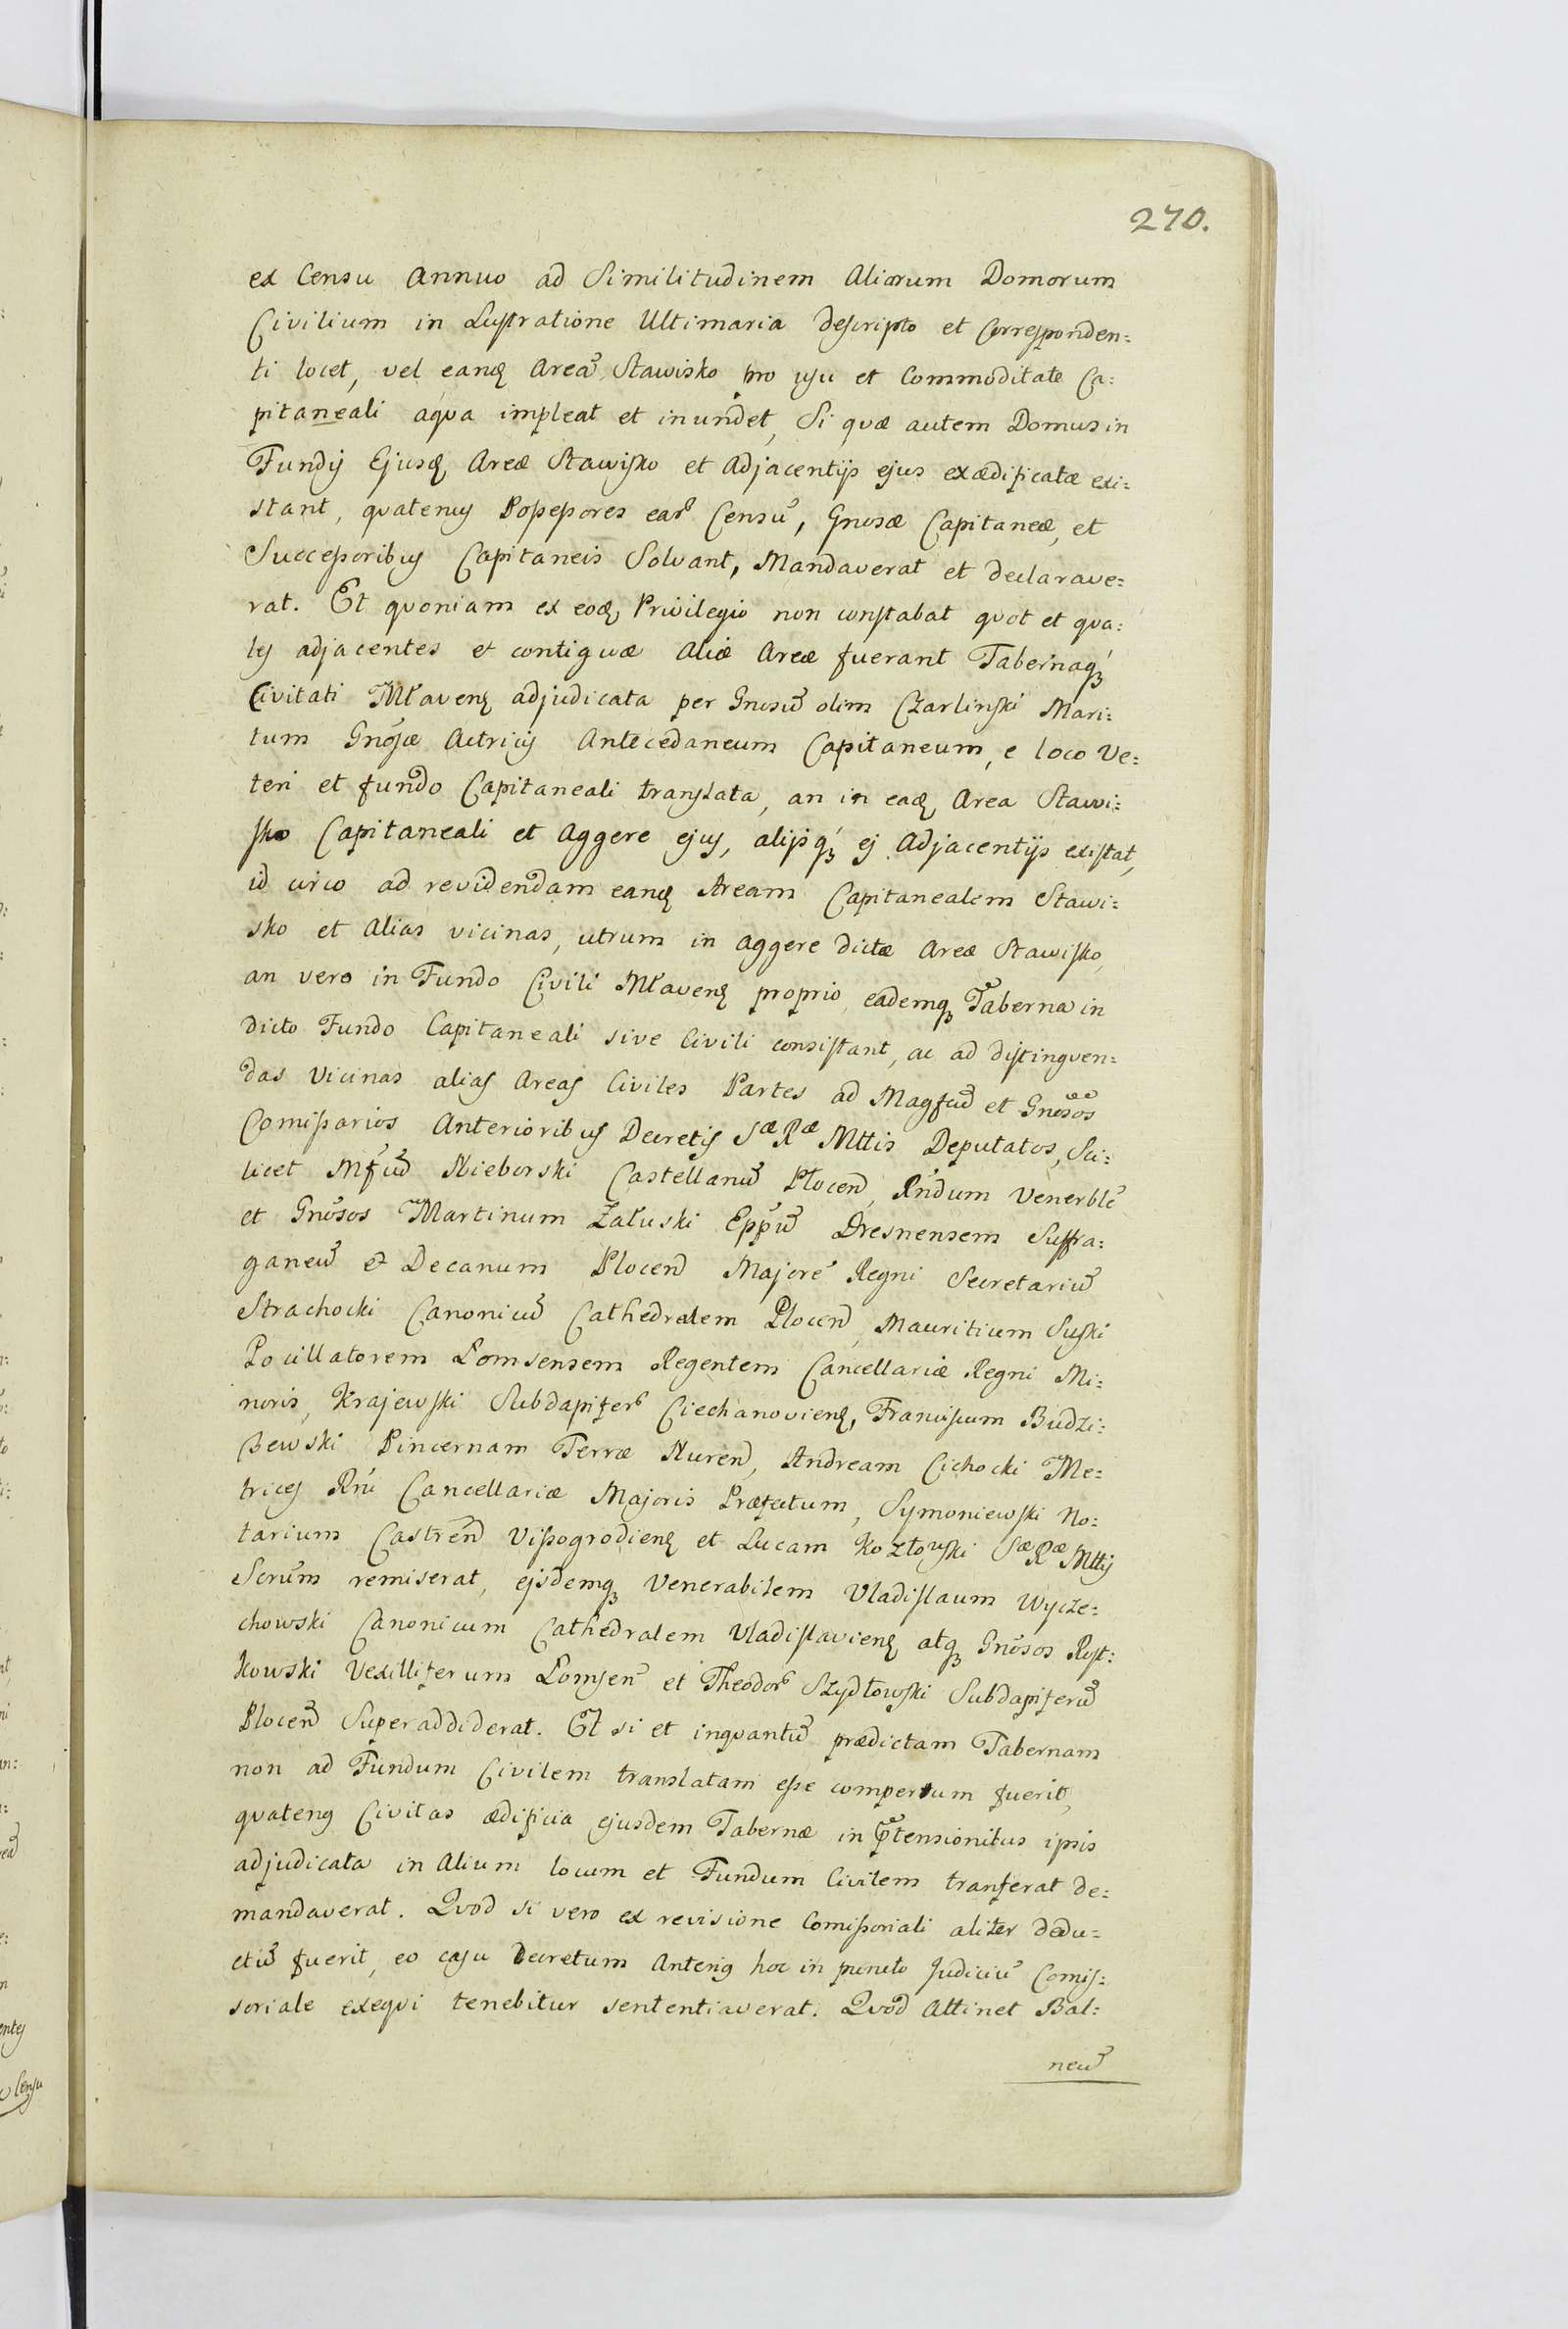 270.
ex Censu Annuo ad Similitudinem Aliorum Domorum
Civilium in Lustratione Ultimaria descripto et Corresponden:
ti locet, vel eandꝫ Areã Stawisko pro usu et Commoditate Ca:
pitaneali aqva impleat et inundet, Si qvæ autem Domus in
Fundis Ejusdꝫ Areæ Stawisko et Adjacentijs ejus exædificatæ exi:
stant, qvatenus Possessores earũ Censũ, Gnosæ Capitaneæ, et
Successoribus Capitaneis Solvant, Mandaverat et declarave:
rat. Et qvoniam ex eodꝫ Privilegio non constabat qvot et qva:
les adjacentes et contiguæ aliæ Areæ fuerant Tabernaqꝫ
Civitati Mławenꝫ adjudicata per Gnosũ olim Czarlinski Mari:
tum Gnõsæ Actricis Antecedaneum Capitaneum, e loco Ve:
teri et fundo Capitaneali translata, an in eadꝫ Area Stawi:
sko Capitaneali et Aggere ejus, alijsqꝫ ej Adjacentijs existat,
id circo ad revidendam eandꝫ Aream Capitanealem Stawi:
sko et Alias vicinas, utrum in aggere dictæ Areæ Stawisko,
an vero in Fundo Civili Mławenꝫ proprio, eademqꝫ Taberna in
dicto Fundo Capitaneali sive Civili consistant, ac ad distingven:
das Vicinas alias Areas Civiles Partes ad Magfcũ et Gnosõs
Comissarios Anterioribus Decretis Sæ Ræ Mttis Deputatos, Sci:
licet Mfcũ Nieborski Castellanũ Płocen, Rndum Venerblẽ
et Gnõsos Martinum Załuski Eppũ Dresnensem Suffra:
ganeũ et Decanum Plocen Majorẽ Regni Secretariũ
Strachocki Canonicũ Cathedralem Plocen, Mauritium Suski
Pocillatorem Lomsensem Regentem Cancellariæ Regni Mi:
noris, Krajewski Subdapiferũ Ciechanovienꝫ, Franciscum Budzi:
szewski Pincernam Terræ Nuren, Andream Cichocki Me:
trices Rni Cancellariæ Majoris Præfectum, Symoniewski No:
tarium Castren Vissogrodienꝫ et Lucam Kozłowski Sæ Ræ Mttis
Scrũm remiserat, eisdemqꝫ Venerabilem Vladislaum Wycze:
chowski Canonicum Cathedralem Vladislavienꝫ atqꝫ Gnõsos Rost:
kowski Vexilliferum Lomsen et Theodorũ Szydłowski Subdapiferũ
Plocen Superaddiderat. Et si et inqvantũ prædictam Tabernam
non ad Fundum Civilem translatam esse compertum fuerit,
qvatenꝰ Civitas ædificia ejusdem Tabernæ in prætensionibus ipsis
adjudicata in Alium locum et Fundum Civilem tranferat de:
mandaverat. Qvod si vero ex revisione Comissoriali aliter dedu:
ctũ fuerit, eo casu Decretum Anterig hoc in puncto Judiciũ Comis:
soriale exeqvi tenebitur sententiaverat. Qvod Attinet Bal:
neũ